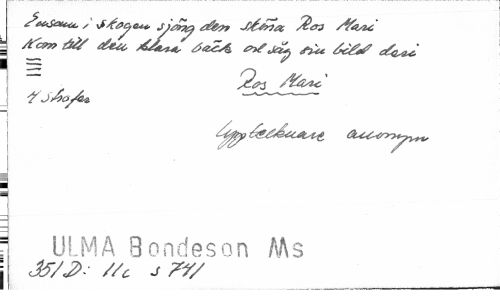 Ensam i skogen sjöng den sköna Ros Mari
Kom till den klara bäck och såg sin bild deri
4 strofer
Ros Mari
Upptecknare anonym
ULMA Bondeson Ms
351 D: 11c s 741